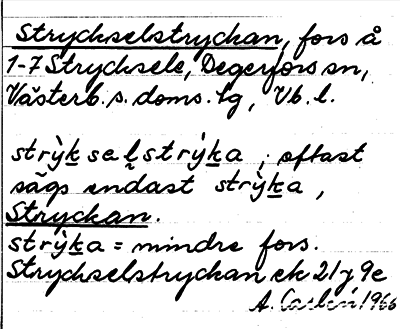 Stryckselstryckan, fors å
1-7 Strycksele, Degerfors sn,
Västerb. s. doms. tg, Vb. l.
strỳk̲sel̥strỳk̲a, oftast
sägs endast strỳk̲a,
Stryckan.
strỳk̲a = mindre fors.
Stryckselstryckan ek 21 y 9e
A. 1966